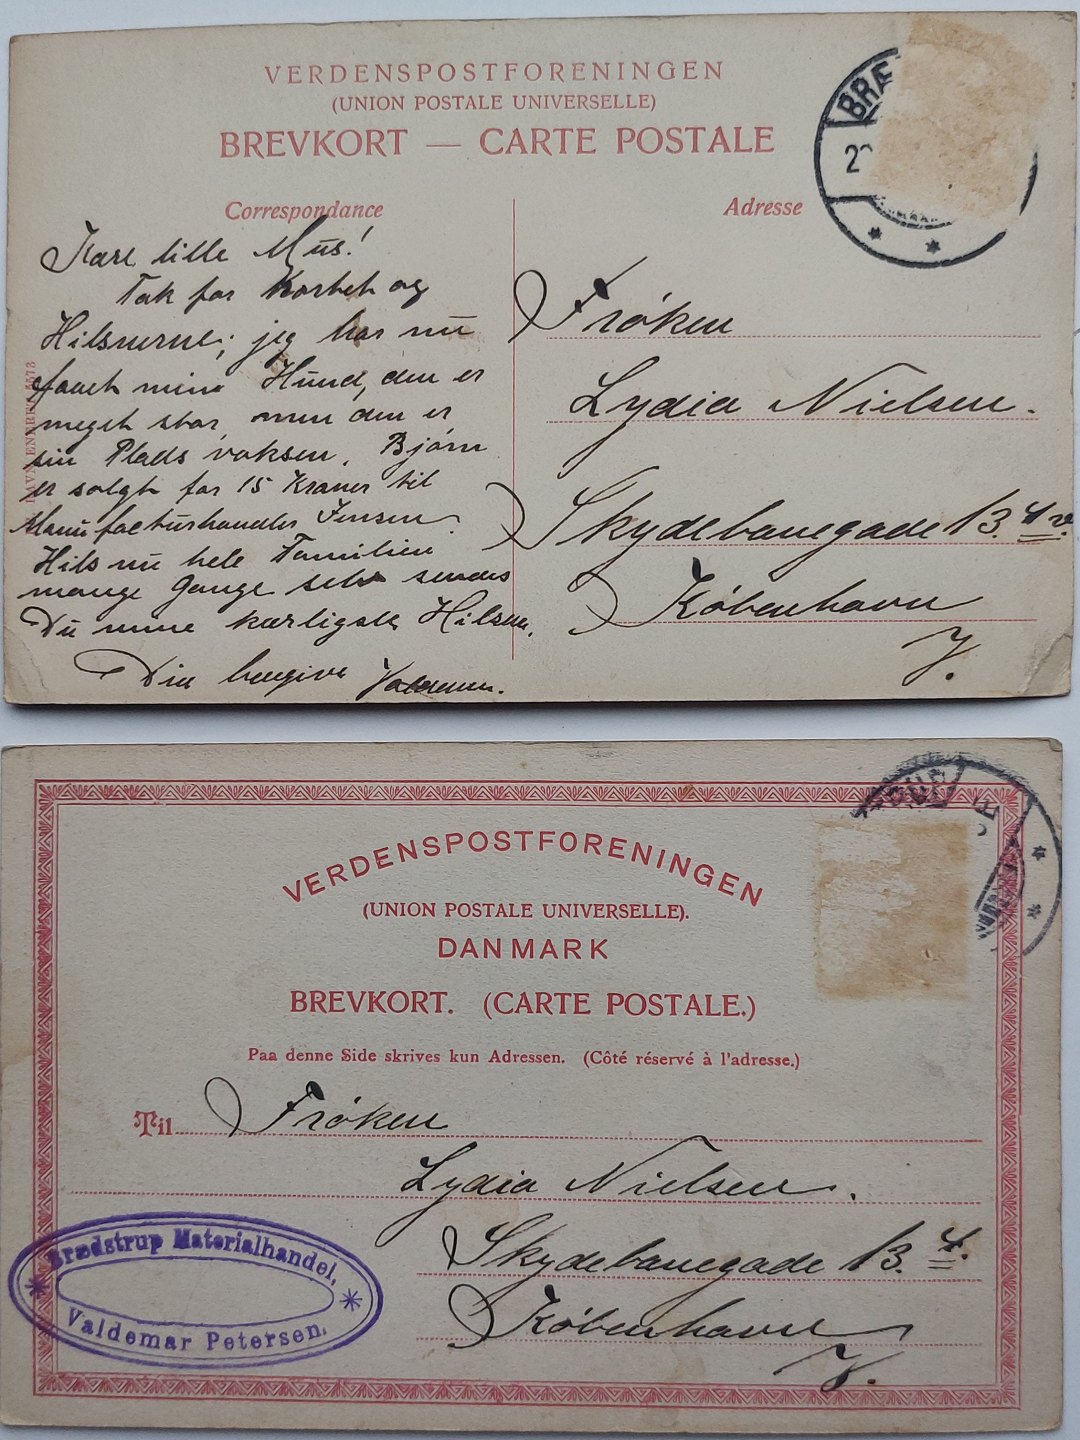 VERDENSPOSTFORENINGEN
(UNION POSTALE UNIVERSELLE)
BREVKORT — CARTE POSTALE
BRÆ
Correspondance
Adresse
Kære lille Mus!
Tak for Kortet og
Hilsnerne; jeg har nu
faaet mine Hund, den er
meget stor, men den er
sin Plads voksen. Bjørn
er solgt for 15 Kroner til
Manufacturhandler Jensen.
Hils nu hele Familien
mange Gange selv sendes
Du mine kærligste Hilsen.
Din hengivne Valdemar.
Frøken
Lydia Nielsen.
Skydebanegade 13. 4 v.
København
V.
VERDENSPOSTFORENINGEN
(UNION POSTALE UNIVERSELLE).
DANMARK
BREVKORT. (CARTE POSTALE.)
Paa denne Side skrives kun Adressen. (Côté réservé à l'adresse.)
Til Frøken
Lydia Nielsen.
Skydebanegade 13. 4.
København
V.
Brædstrup Materialhandel,
Valdemar Petersen.